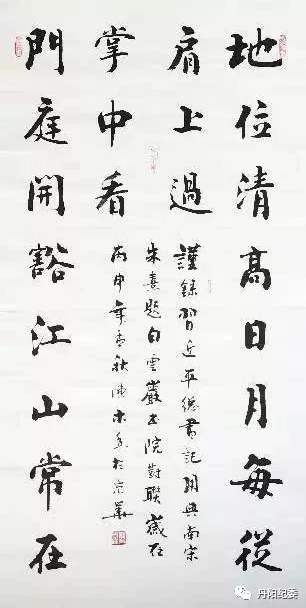 地位清高日月每從
肩上過
門庭開豁江山常在
掌中看
謹錄習近平總書記用典南宋
朱熹題白雲巖書院對聯歲在
丙申年秋陳木於京華
丹阳纪委